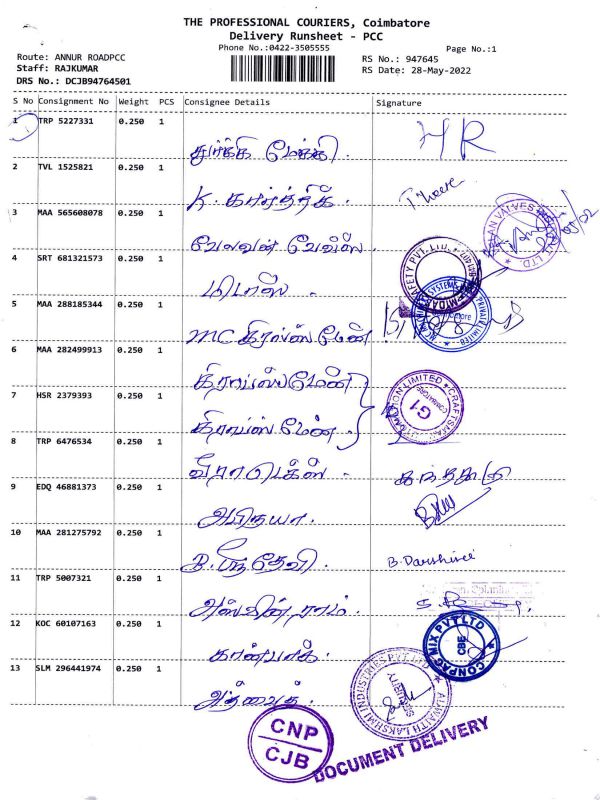 THE PROFESSIONAL COURIERS, Coimbatore
Delivery Runsheet - PCC
Phone No.:0422-3505555
Page No.:1
Route: ANNUR ROADPCC
Staff: RAJKUMAR
DRS No.: DCJB94764501
RS No.: 947645
RS Date: 28-May-2022
S No Consignment No Weight PCS Consignee Details Signature
1 TRP 5227331 0.250 1 HR
2 TVL 1525821 0.250 1
K. கார்த்திக்
3 MAA 565608078 0.250 1
வேலவன் வேல்ஸ்
4 SRT 681321573 0.250 1
மிடாஸ்
5 MAA 288185344 0.250 1
MC கிராஃப்ஸ் மேன்
6 MAA 282499913 0.250 1
கிராப்ஸ்மேன்
7 HSR 2379393 0.250 1
கிராப்ஸ் மேன்
8 TRP 6476534 0.250 1
9 EDQ 46881373 0.250 1
அபிநயா.
10 MAA 281275792 0.250 1
B. Darshinee
11 TRP 5007321 0.250 1
அஸ்வின் ராம்.
12 KOC 60107163 0.250 1
கான்பாக்.
CONPAC MIX PVT LTD
CBE
13 SLM 296441974 0.250 1
அத்வைத்.
ADWAITH LAKSHMI INDUSTRIES PVT. LTD.
SECURITY
G1
COIMBATORE
CNP
CJB
DOCUMENT DELIVERY